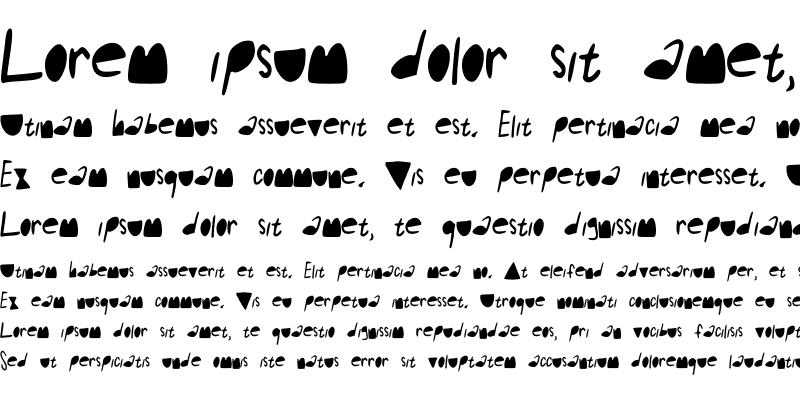 Lorem ipsum dolor sit amet,
Utinam habemus assueverit et est. Elit pertinacia mea no
Ex eam nusquam commune. Vis eu perpetua interesset. U
Lorem ipsum dolor sit amet, te quaestio dignissim repudianda
Utinam habemus assueverit et est. Elit pertinacia mea no. At eleifend adversarium per, et s
Ex eam nusquam commune. Vis eu perpetua interesset. Utroque nominati conclusionemque eu se
Lorem ipsum dolor sit amet, te quaestio dignissim repudiandae eos, pri an vocibus facilisis volupt
Sed ut perspiciatis unde omnis iste natus error sit voluptatem accusantium doloremque laudantiu